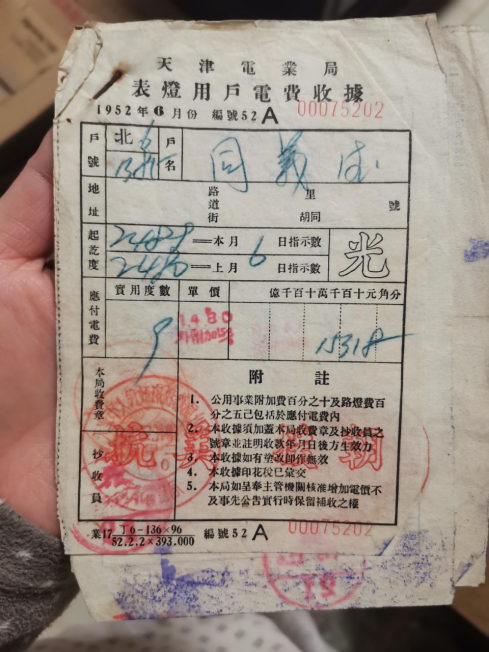 天津電業局
表燈用戶電費收據
1952年6月份 編號52 A 00075202
戶號 北 戶名 同義成
地址 路道街 里胡同 號
起訖度 本月6日指示數
上月 日指示數
光
應付電費 實用度數 單價 億千百十萬千百十元角分
9 1480 15318
本局收費章
抄收員
附註
1. 公用事業附加費百分之十及路燈費百分之五已包括於應付電費內
2. 本收據須加蓋本局收費章及抄收員之號章並註明收款年月日後方生效力
3. 本收據如有塗改即作無效
4. 本收據印花稅已彙交
5. 本局如呈奉主管機關核准增加電價不及事先公告實行時保留補收之權
抗美援朝
業17 丁6-136×96
52.2.2×393.000 編號52 A 00075202